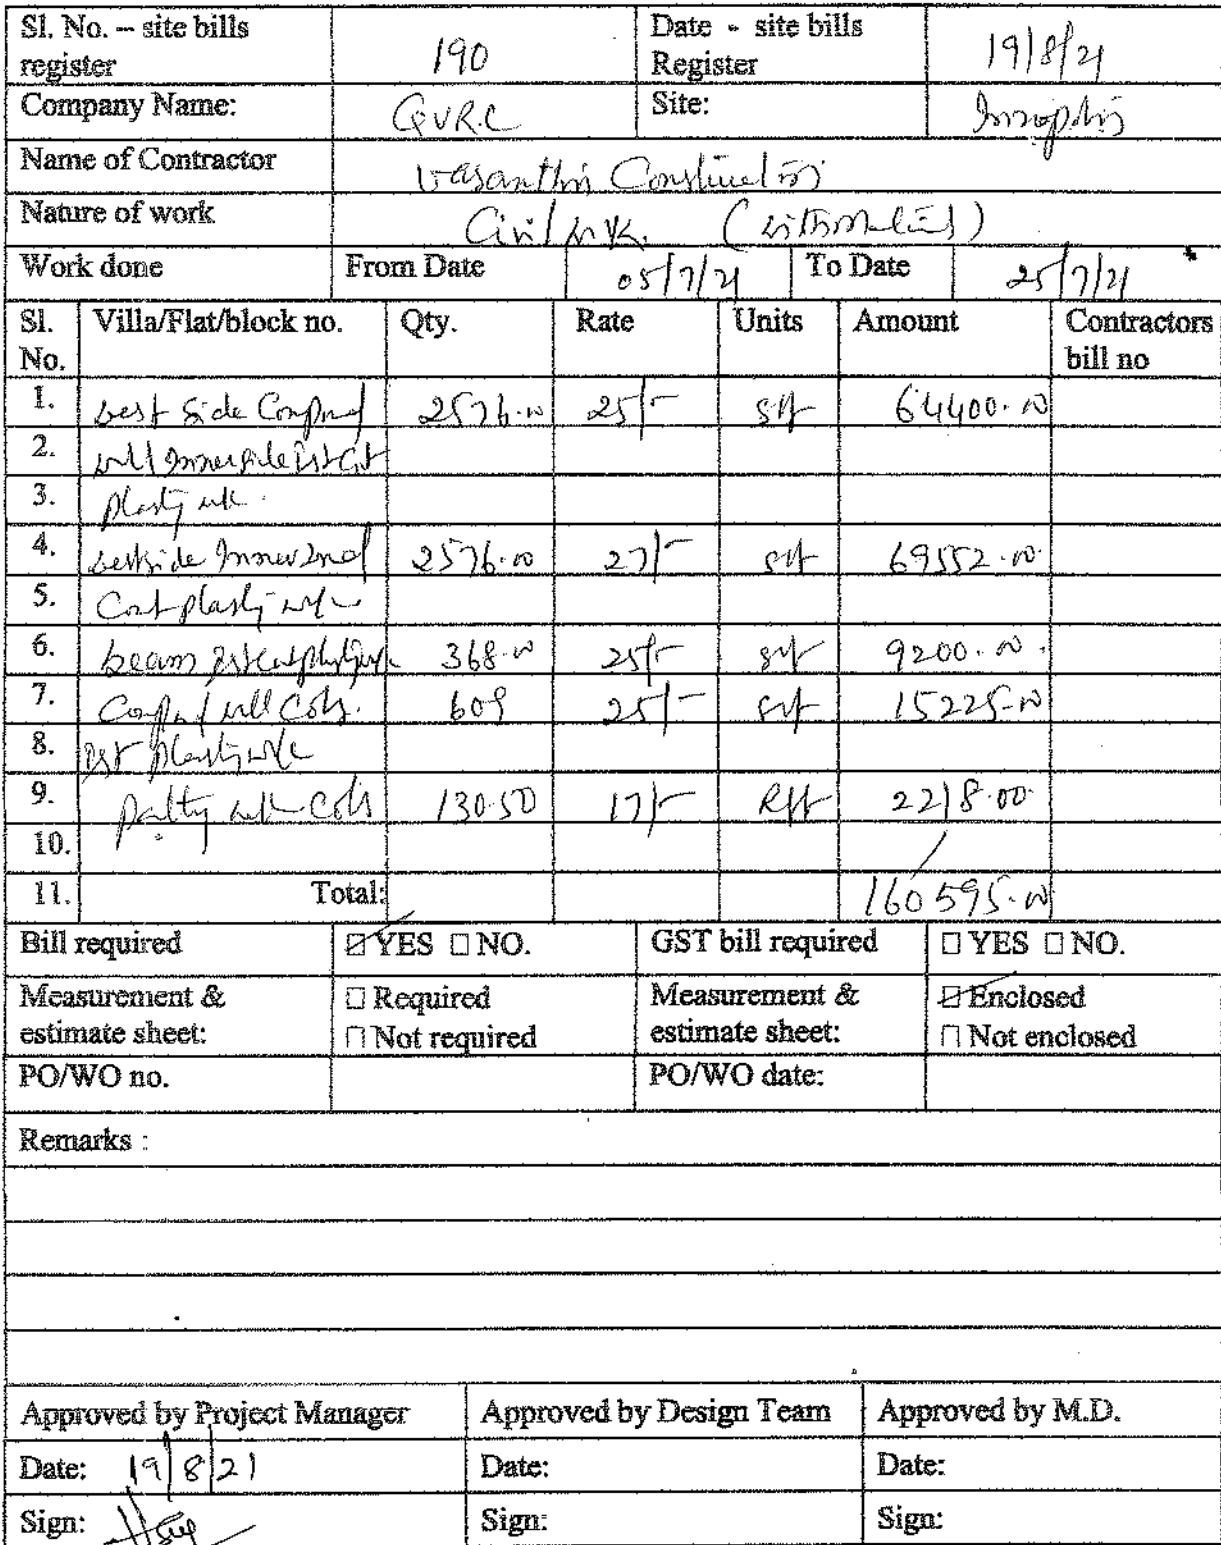 Sl. No. – site bills register 190 Date - site bills Register 19/8/21
Company Name: GVRC Site: Innoplis
Name of Contractor Vasanthi Constructions
Nature of work Civil wk. (with material)
Work done From Date 05/7/21 To Date 25/7/21
Sl. No. Villa/Flat/block no. Qty. Rate Units Amount Contractors bill no
1. west side Compound 2576.00 25/- sft 64400.00
2. wall Innerside 1st Coat
3. plastg wk.
4. westside Inner 2nd 2576.00 27/- sft 69552.00
5. Coat plastg wk
6. beam 1st coat 368.00 25/- sft 9200.00.
7. Compound wall Cols. 609 25/- sft 15225.00
8. 1st plastg wk
9. wk Cols 130.50 17/- Rft 2218.00
10.
11. Total: 160595.00
Bill required ☑ YES ☐ NO. GST bill required ☐ YES ☐ NO.
Measurement & estimate sheet: ☐ Required ☐ Not required Measurement & estimate sheet: ☑ Enclosed ☐ Not enclosed
PO/WO no. PO/WO date:
Remarks :
Approved by Project Manager Approved by Design Team Approved by M.D.
Date: 19/8/21 Date: Date:
Sign: Sign: Sign: